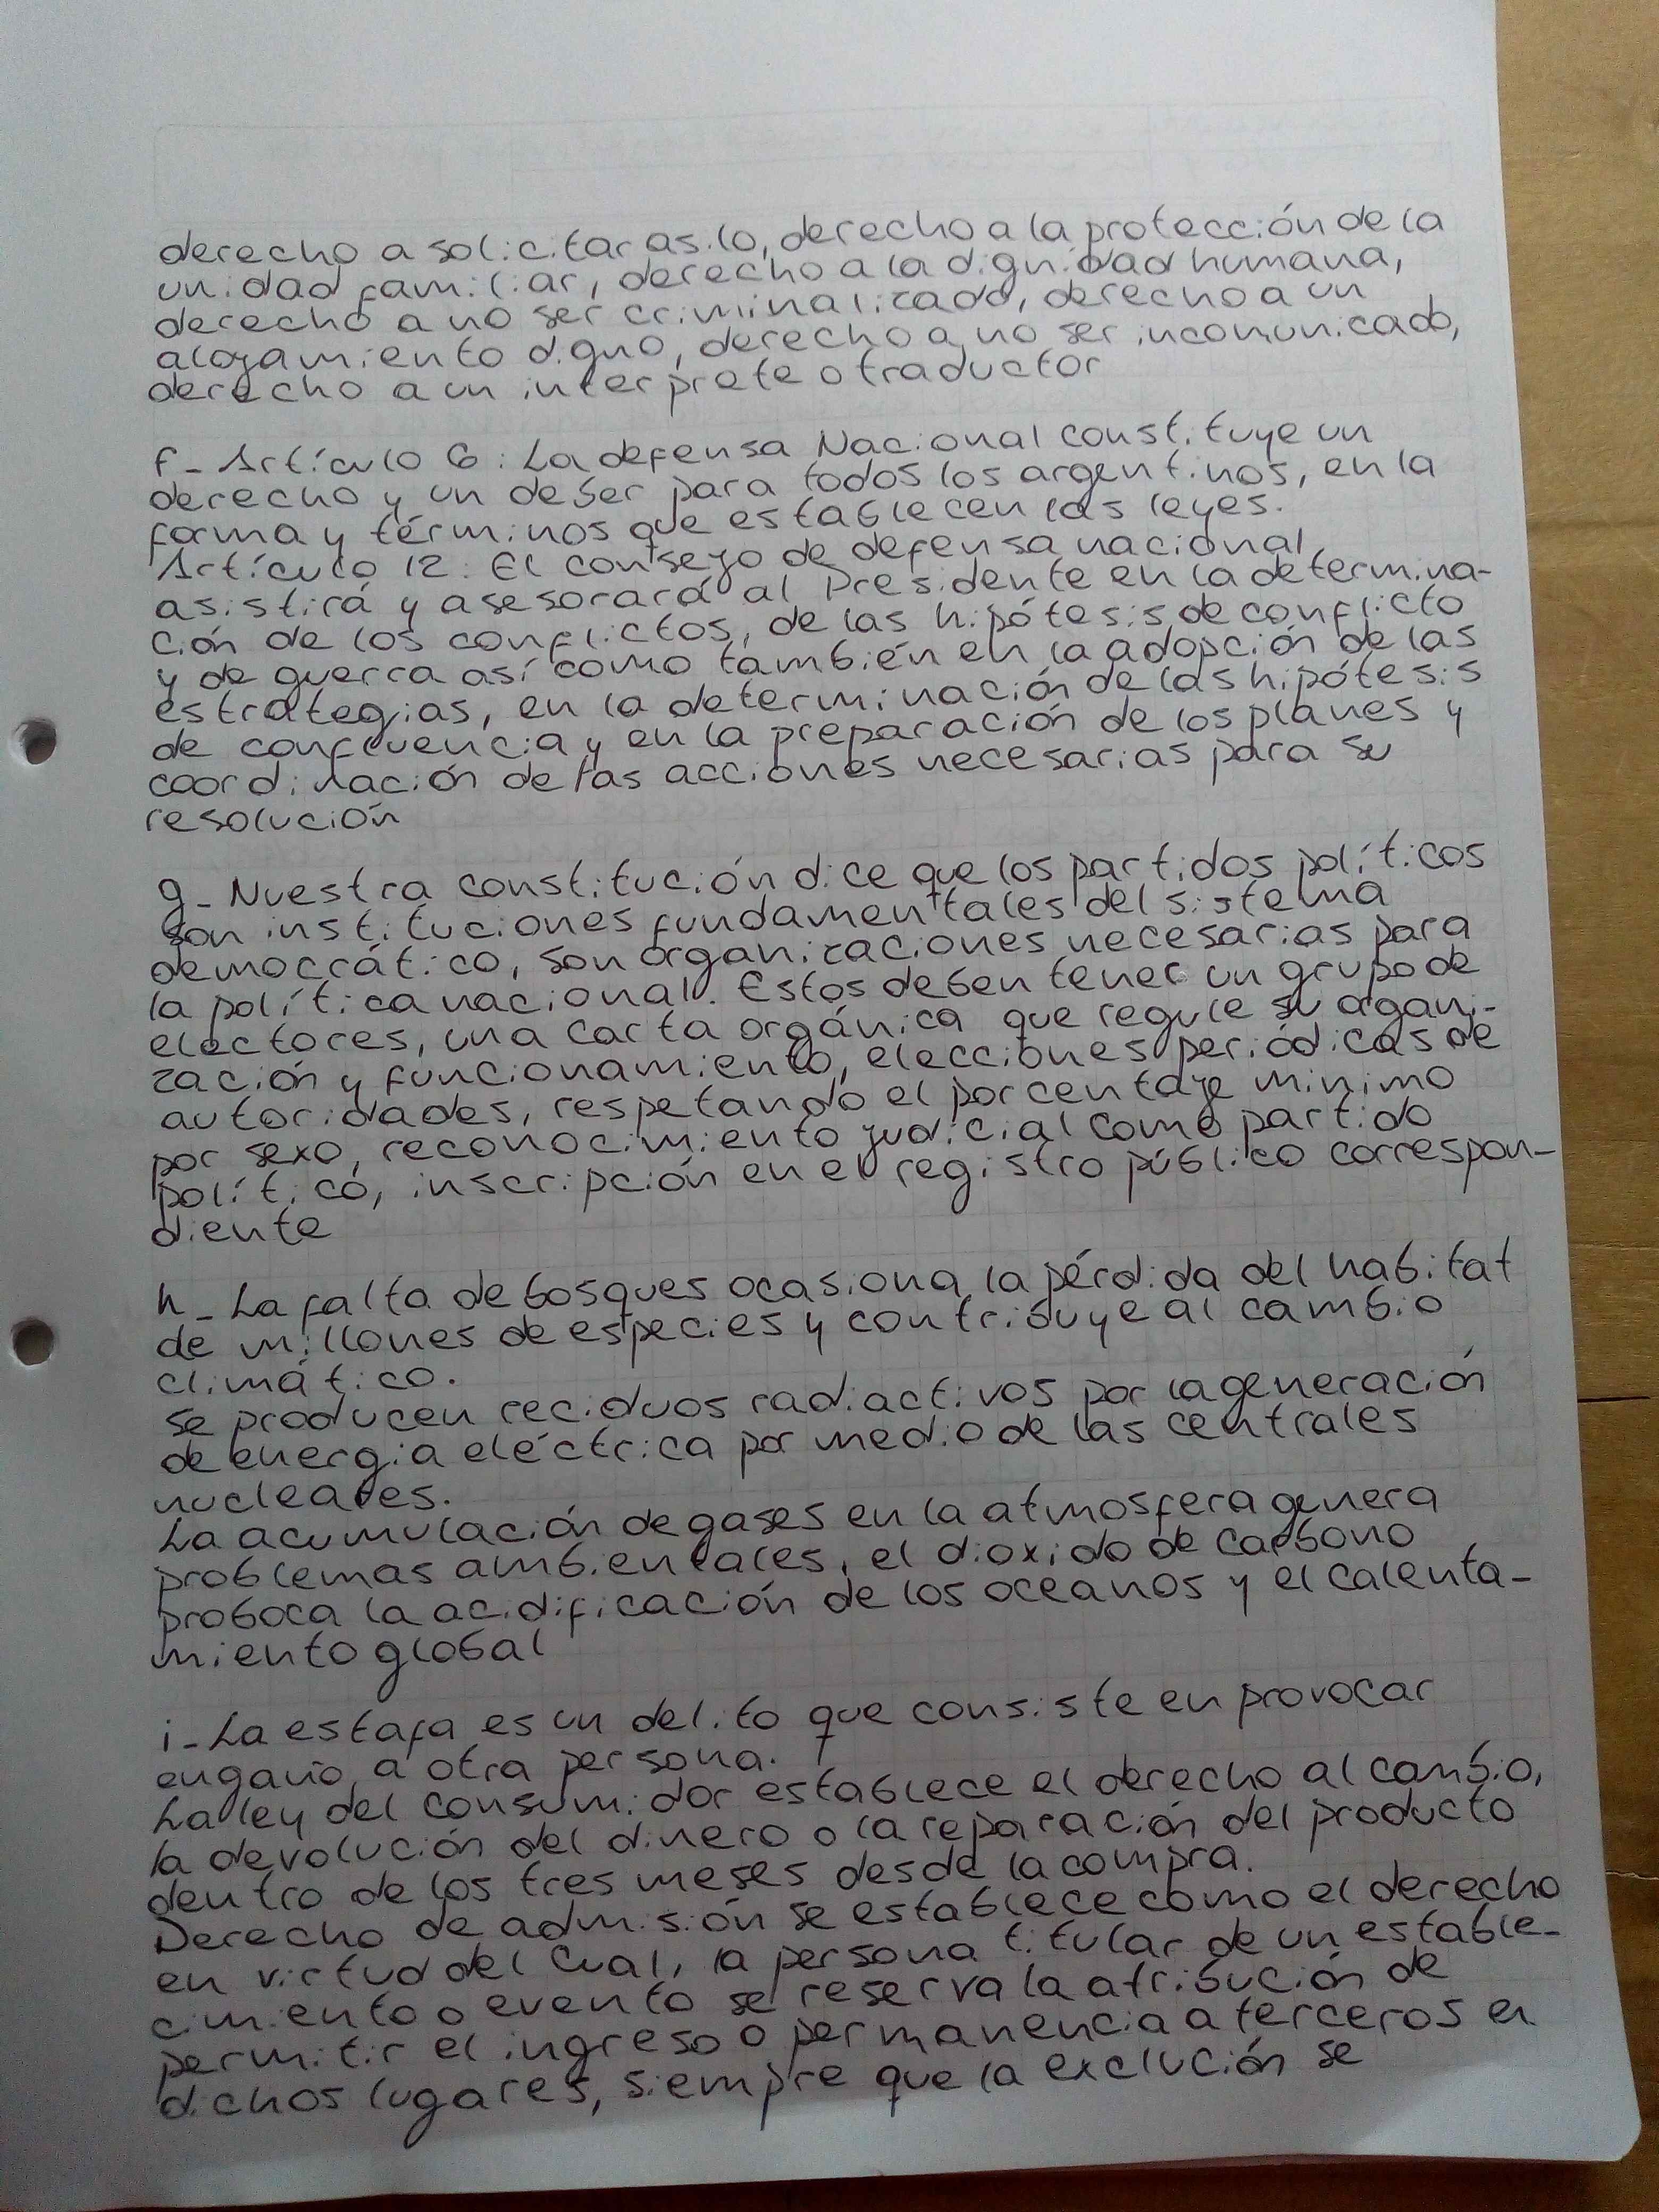 derecho a solicitar asilo, derecho a la protección de la
unidad familiar, derecho a la dignidad humana,
derecho a no ser criminalizado, derecho a un
alojamiento digno, derecho a no ser incomunicado,
derecho a un interprete o traductor
f- Artículo 6: La defensa Nacional constituye un
derecho y un deber para todos los argentinos, en la
forma y términos que establecen las leyes.
Artículo 12: El consejo de defensa nacional
asistirá y asesorará al Presidente en la determina-
ción de los conflictos, de las hipótesis de conflicto
y de guerra así como también en la adopción de las
estrategias, en la determinación de las hipótesis
de confluencia y en la preparación de los planes y
coordinación de las acciones necesarias para su
resolución
g- Nuestra constitución dice que los partidos políticos
son instituciones fundamentales del sistema
democrático, son organizaciones necesarias para
la política nacional. Estos deben tener un grupo de
electores, una carta orgánica que regule su organi-
zación y funcionamiento, elecciones periódicas de
autoridades, respetando el porcentaje minimo
por sexo, reconocimiento judicial como partido
político, inscripción en el registro público correspon-
diente
h- La falta de bosques ocasiona la pérdida del habitat
de millones de especies y contribuye al cambio
climático.
se producen reciduos radiactivos por la generación
de energia eléctrica por medio de las centrales
nucleares.
La acumulación de gases en la atmosfera genera
problemas ambientales, el dioxido de carbono
proboca la acidificación de los oceanos y el calenta-
miento global
i- La estafa es un delito que consiste en provocar
engaño a otra persona.
La ley del consumidor establece el derecho al cambio,
la devolución del dinero o la reparación del producto
dentro de los tres meses desde la compra.
Derecho de admisión se establece como el derecho
en virtud del cual, la persona titular de un estable-
cimiento o evento se reserva la atribución de
permitir el ingreso o permanencia a terceros en
dichos lugares, siempre que la exclución se